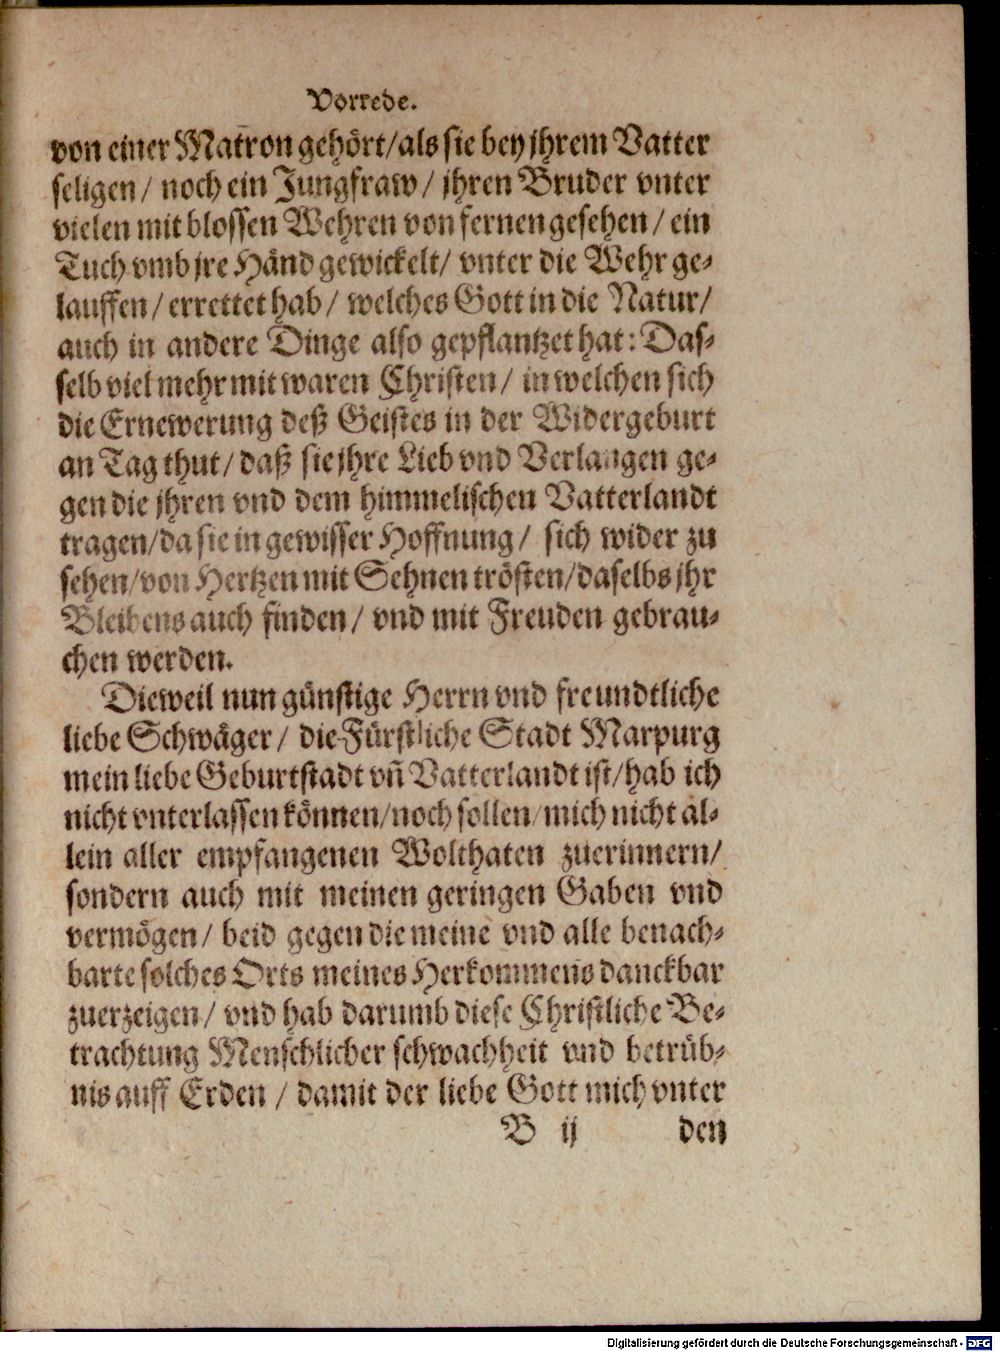 Vorrede.
von einer Matron gehört/als sie bey jhrem Vatter
seligen/ noch ein Jungfraw/ jhren Bruder vnter
vielen mit blossen Wehren von fernen gesehen/ ein
Tuch vmb jre Händ gewickelt/ vnter die Wehr ge-
lauffen/ errettet hab/ welches Gott in die Natur/
auch in andere Dinge also gepflantzet hat: Das-
selb viel mehr mit waren Christen/ in welchen sich
die Ernewerung deß Geistes in der Widergeburt
an Tag thut/ daß sie jhre Lieb vnd Verlangen ge-
gen die jhren vnd dem himmelischen Vatterlandt
tragen/da sie in gewisser Hoffnung/ sich wider zu
sehen/von Hertzen mit Sehnen trösten/daselbs jhr
Bleibens auch finden/ vnd mit Freuden gebrau-
chen werden.
Dieweil nun günstige Herrn vnd freundtliche
liebe Schwäger/ die Fürstliche Stadt Marpurg
mein liebe Geburtstadt vñ Vatterlandt ist/hab ich
nicht vnterlassen können/noch sollen/mich nicht al-
lein aller empfangenen Wolthaten zuerinnern/
sondern auch mit meinen geringen Gaben vnd
vermögen/ beid gegen die meine vnd alle benach-
barte solches Orts meines Herkommens danckbar
zuerzeigen/ vnd hab darumb diese Christliche Be-
trachtung Menschlicher schwachheit vnd betrüb-
nis auff Erden/ damit der liebe Gott mich vnter
B ij den
Digitalisierung gefördert durch die Deutsche Forschungsgemeinschaft - DFG